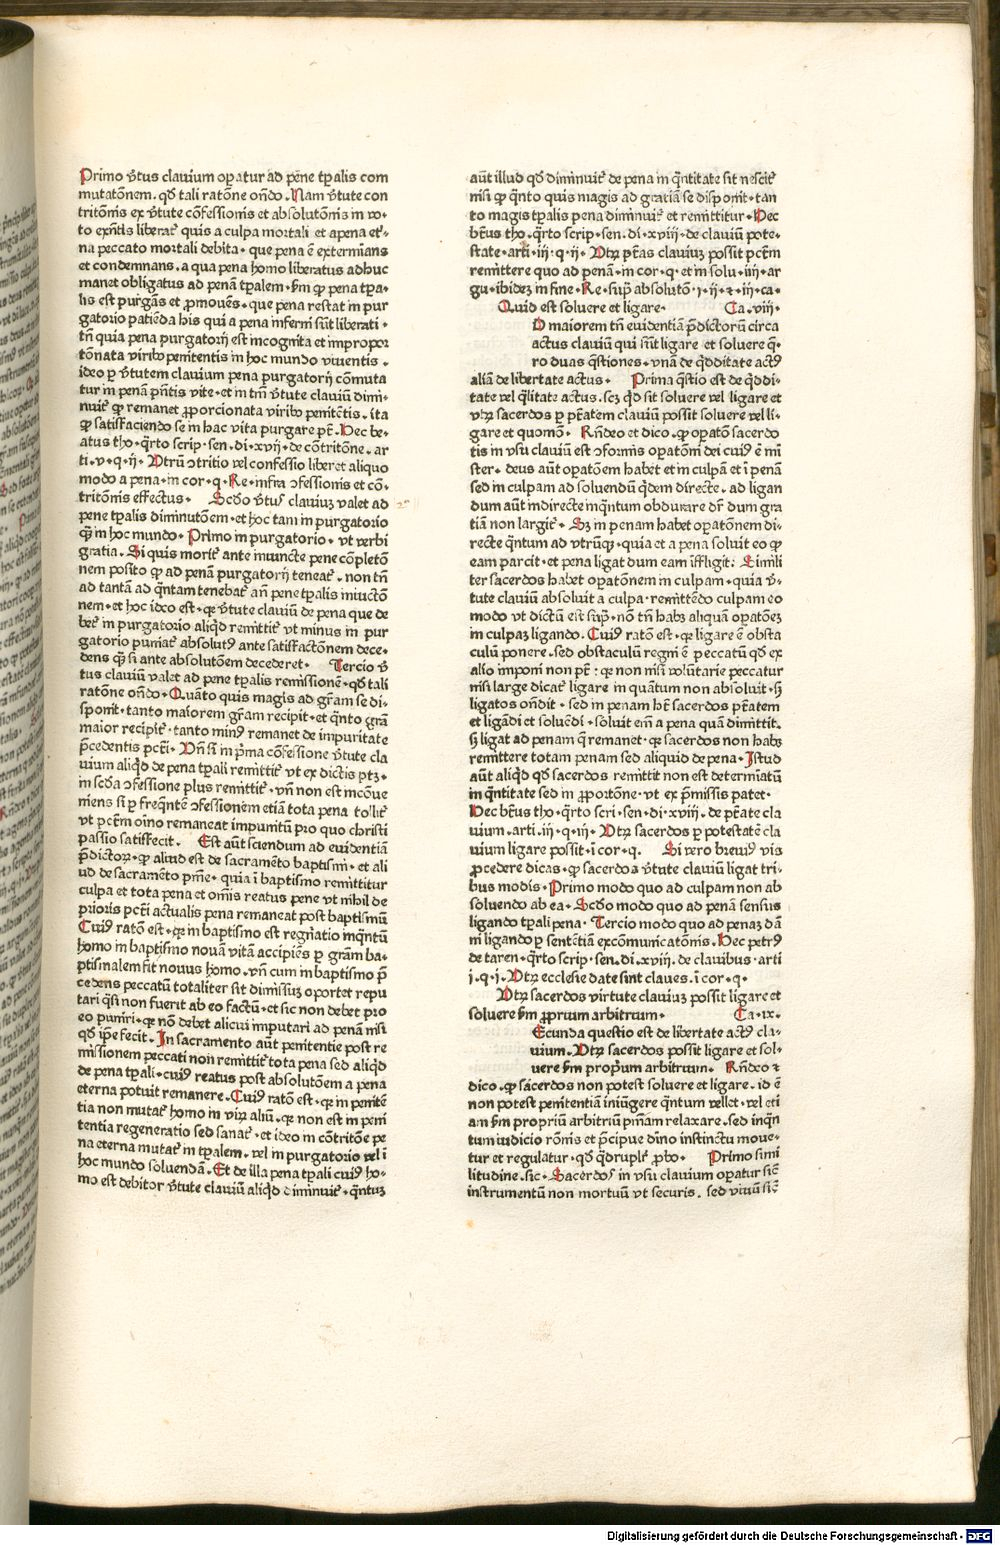 Primo v̄tus clauium oꝑatur ad pēne tꝑalis com
mutatōnem. qd̄ tali ratōne on̄do. Nam v̄tute con
tritōnis ex v̄tute cōfessionis et absolutōnis in vo⸗
to exn̄tis liberat᷑ quis a culpa mortali et apena et᷑⸗
na peccato mortali debita. que pena ē exterminans
et condemnans. a qua pena homo liberatus adhuc
manet obligatus ad penā tꝑalem. ẜm ꝙ pena tꝑa⸗
lis est purgās et ꝓmouēs. que pena restat in pur
gatorio patiēda his qui a pena inferni sūt liberati.
tn̄ quia pena purgatorij est incognita et impropor
tōnata viribꝰ penitentis in hoc mundo viuentis.
ideo ꝑ v̄tutem clauium pena purgatorij cōmuta
tur in penā pn̄tis vite. et in tm̄ v̄tute clauiū dimi⸗
nuit᷑ ꝙ remanet ꝓporcionata viribꝰ penitētis. ita
ꝙ satisfaciendo se in hac vita purgare pt̄. Hec be⸗
atus tho. q̄rto scrip. sen. di. xvij. de cōtritōne. ar
ti. v. q. ij. Vtrū ↄtritio vel confessio liberet aliquo
modo a pena. in cor. q. Re. infra ↄfessionis et cō⸗
tritōnis effectus. Scd̄o v̄tus clauiuꝫ valet ad
pene tꝑalis diminutōem. et hoc tam in purgatorio
ꝙ̄ in hoc mundo. Primo in purgatorio. vt verbi
gratia. Si quis morit᷑ ante iniuncte pene cōpletō
nem posito ꝙ ad penā purgatorij teneat᷑. non tn̄
ad tantā ad q̄ntam tenebat᷑ an̄ pene tꝑalis iniuctō
nem. et hoc ideo est. qꝛ v̄tute clauiū de pena que de
bet᷑ in purgatorio aliqd̄ remittit᷑ vt minus in pur
gatorio puniat᷑ absolutꝰ ante satisfactōnem dece⸗
dens ꝙ̄ si ante absolutōem decederet. Tercio v̄
tus clauiū valet ad pene tꝑalis remissionē. qd̄ tali
ratōne on̄do. Quāto quis magis ad gr̄am se di⸗
sponit. tanto maiorem gr̄am recipit. et q̄nto grā
maior recipit᷑. tanto minꝰ remanet de impuritate
p̄cedentis pctī. Vn̄ si in pͥma cōfessione v̄tute cla
uium aliqd̄ de pena tꝑali remittit᷑ vt ex dictis ptꝫ.
in scd̄a ↄfessione plus remittit᷑. vn̄ non est incōue
niens si ꝑ freq̄ntē ↄfessionem etiā tota pena tollit᷑
vt pctm̄ oīno remaneat impunitū pro quo christi
passio satisfecit. Est aūt sciendum ad euidentiā
p̄dictoꝝ. ꝙ aliud est de sacramēto baptismi. et ali
ud de sacramēto pn̄ie. quia ī baptismo remittitur
culpa et tota pena et omīs reatus pene vt nihil de
prioris pctī actualis pena remaneat post baptismū
Cuiꝰ ratō est. qꝛ in baptismo est regn̄atio inq̄ntū
homo in baptismo nouā vitā accipiēs ꝑ grām ba⸗
ptismalem fit nouus homo. vn̄ cum in baptismo p̄
cedens peccatū totaliter sit dimissuꝫ oportet repu
tari q̄si non fuerit ab eo factū. et sic non debet pro
eo puniri. qꝛ nō debet alicui imputari ad penā nisi
qd̄ ipē fecit. In sacramento aūt penitentie post re
missionem peccati non remittit᷑ tota pena sed aliqd̄
de pena tꝑali. cuiꝰ reatus post absolutōem a pena
eterna potuit remanere. Cuiꝰ ratō est. qꝛ in penitē
tia non mutat᷑ homo in viꝝ aliū. qꝛ non est in peni
tentia regeneratio sed sanat᷑. et ideo in cōtritōne pe
na eterna mutat᷑ in tꝑalem. vel in purgatorio vel ī
hoc mundo soluendā. Et de illa pena tꝑali cuiꝰ ho⸗
mo est debitor v̄tute clauiū aliqd̄ diminuit᷑. q̄ntuꝫ
aūt illud qd̄ diminuit᷑ de pena in q̄ntitate sit nescit᷑
nisi ꝙ q̄nto quis magis ad gratiā se disponit. tan
to magis tꝑalis pena diminuit᷑ et remittitur. Hec
bt̄us tho. q̄rto scrip. sen. di. xviij. de clauiū pote⸗
state. arti. iij. q. ij. Vtꝝ pt̄as clauiuꝫ possit pctm̄
remittere quo ad penā. in cor. q. et in solu. iiij. ar
gu. ibidez in fine. Re. sup̄ absolutō. i. ij. ⁊ iij. ca.
Quid est soluere et ligare. Ca. viij.
D maiorem tn̄ euidentiā p̄dictorū circa
actus clauiū qui sūt ligare et soluere q̄⸗
ro duas q̄stiones. vnā de q̄dditate actꝰ
aliā de libertate actus. Prima q̄stio est de q̄ddi⸗
tate vel q̄litate actus. scꝫ qd̄ sit soluere vel ligare et
vtꝝ sacerdos ꝑ pt̄atem clauiū possit soluere vel li⸗
gare et quomō. Rn̄deo et dico. ꝙ opatō sacerdo
tis in vsu clauiū est ↄformis opatōni dei cuiꝰ ē mi
ster. deus aūt opatōem habet et in culpā et ī penā
sed in culpam ad soluendū q̄dem directe. ad ligan
dum aūt indirecte inq̄ntum obdurare dr̄ dum gra
tiā non largit᷑. Sꝫ in penam habet opatōnem di⸗
recte q̄ntum ad vtrūqꝫ. quia et a pena soluit eo ꝙ
eam parcit. et pena ligat dum eam īffligit: Simili
ter sacerdos habet opatōnem in culpam. quia v̄⸗
tute clauiū absoluit a culpa. remittēdo culpam eo
modo vt dictū est sup̄. nō tn̄ habꝫ aliquā opatōeꝫ
in culpaꝫ ligando. Cuiꝰ ratō est. qꝛ ligare ē obsta
culū ponere. sed obstaculū regni ē peccatū qd̄ ex
alio imponi non pt̄: qꝛ non nisi volūtarie peccatur
nisi large dicat᷑ ligare in quātum non absoluit. ẜ
ligatos on̄dit. sed in penam hꝫ sacerdos pt̄atem
et ligādi et soluēdi. soluit em̄ a pena quā dimittit.
ẜ ligat ad penam q̄ remanet. qꝛ sacerdos non habꝫ
remittere totam penam sed aliquid de pena. Istud
aūt aliqd̄ qd̄ sacerdos remittit non est determiatū
in q̄ntitate sed in ꝓportōne. vt ex p̄missis patet.
Hec bt̄us tho. q̄rto scri. sen. di. xviij. de pt̄ate cla
uium. arti. iij. q. iij. Vtꝝ sacerdos ꝑ potestatē cla
uium ligare possit. ī cor. q. Si vero breuiꝰ vis
ꝓcedere dicas. ꝙ sacerdos v̄tute clauiū ligat tri⸗
bus modis. Primo modo quo ad culpam non ab
soluendo ab ea. Scd̄o modo quo ad penā sensus
ligando tꝑali pena. Tercio modo quo ad penaꝫ dā
ni ligando ꝑ sentētiā excōmunicatōnis. Hec petrꝰ
de taren. q̄rto scrip. sen. di. xviij. de clauibus. arti
i. q. i. Vtꝝ ecclesie date sint claues. ī cor. q.
Vtꝝ sacerdos virtute clauiuꝫ possit ligare et
soluere ẜm ꝓprium arbitrium. Ca. ix.
Ecunda questio est de libertate actꝰ cla⸗
uium. Vtꝝ sacerdos possit ligare et sol⸗
uere ẜm propriū arbitrium. Rn̄deo ⁊
dico. ꝙ sacerdos non potest soluere et ligare. id ē
non potest penitentiā iniūgere q̄ntum vellet. vel eti
am ẜm propriū arbitriū pn̄iam relaxare. sed inq̄n
tum iudicio rōnis et p̄cipue diuino instinctu moue⸗
tur et regulatur. qd̄ q̄druplr̄ ꝓbo. Primo simi
litudine. sic. Sacerdos in vsu clauium opatur sic̄
instrumentū non mortuū vt securis. sed viuū sic̄
Digitalisierung gefördert durch die Deutsche Forschungsgemeinschaft - DFG